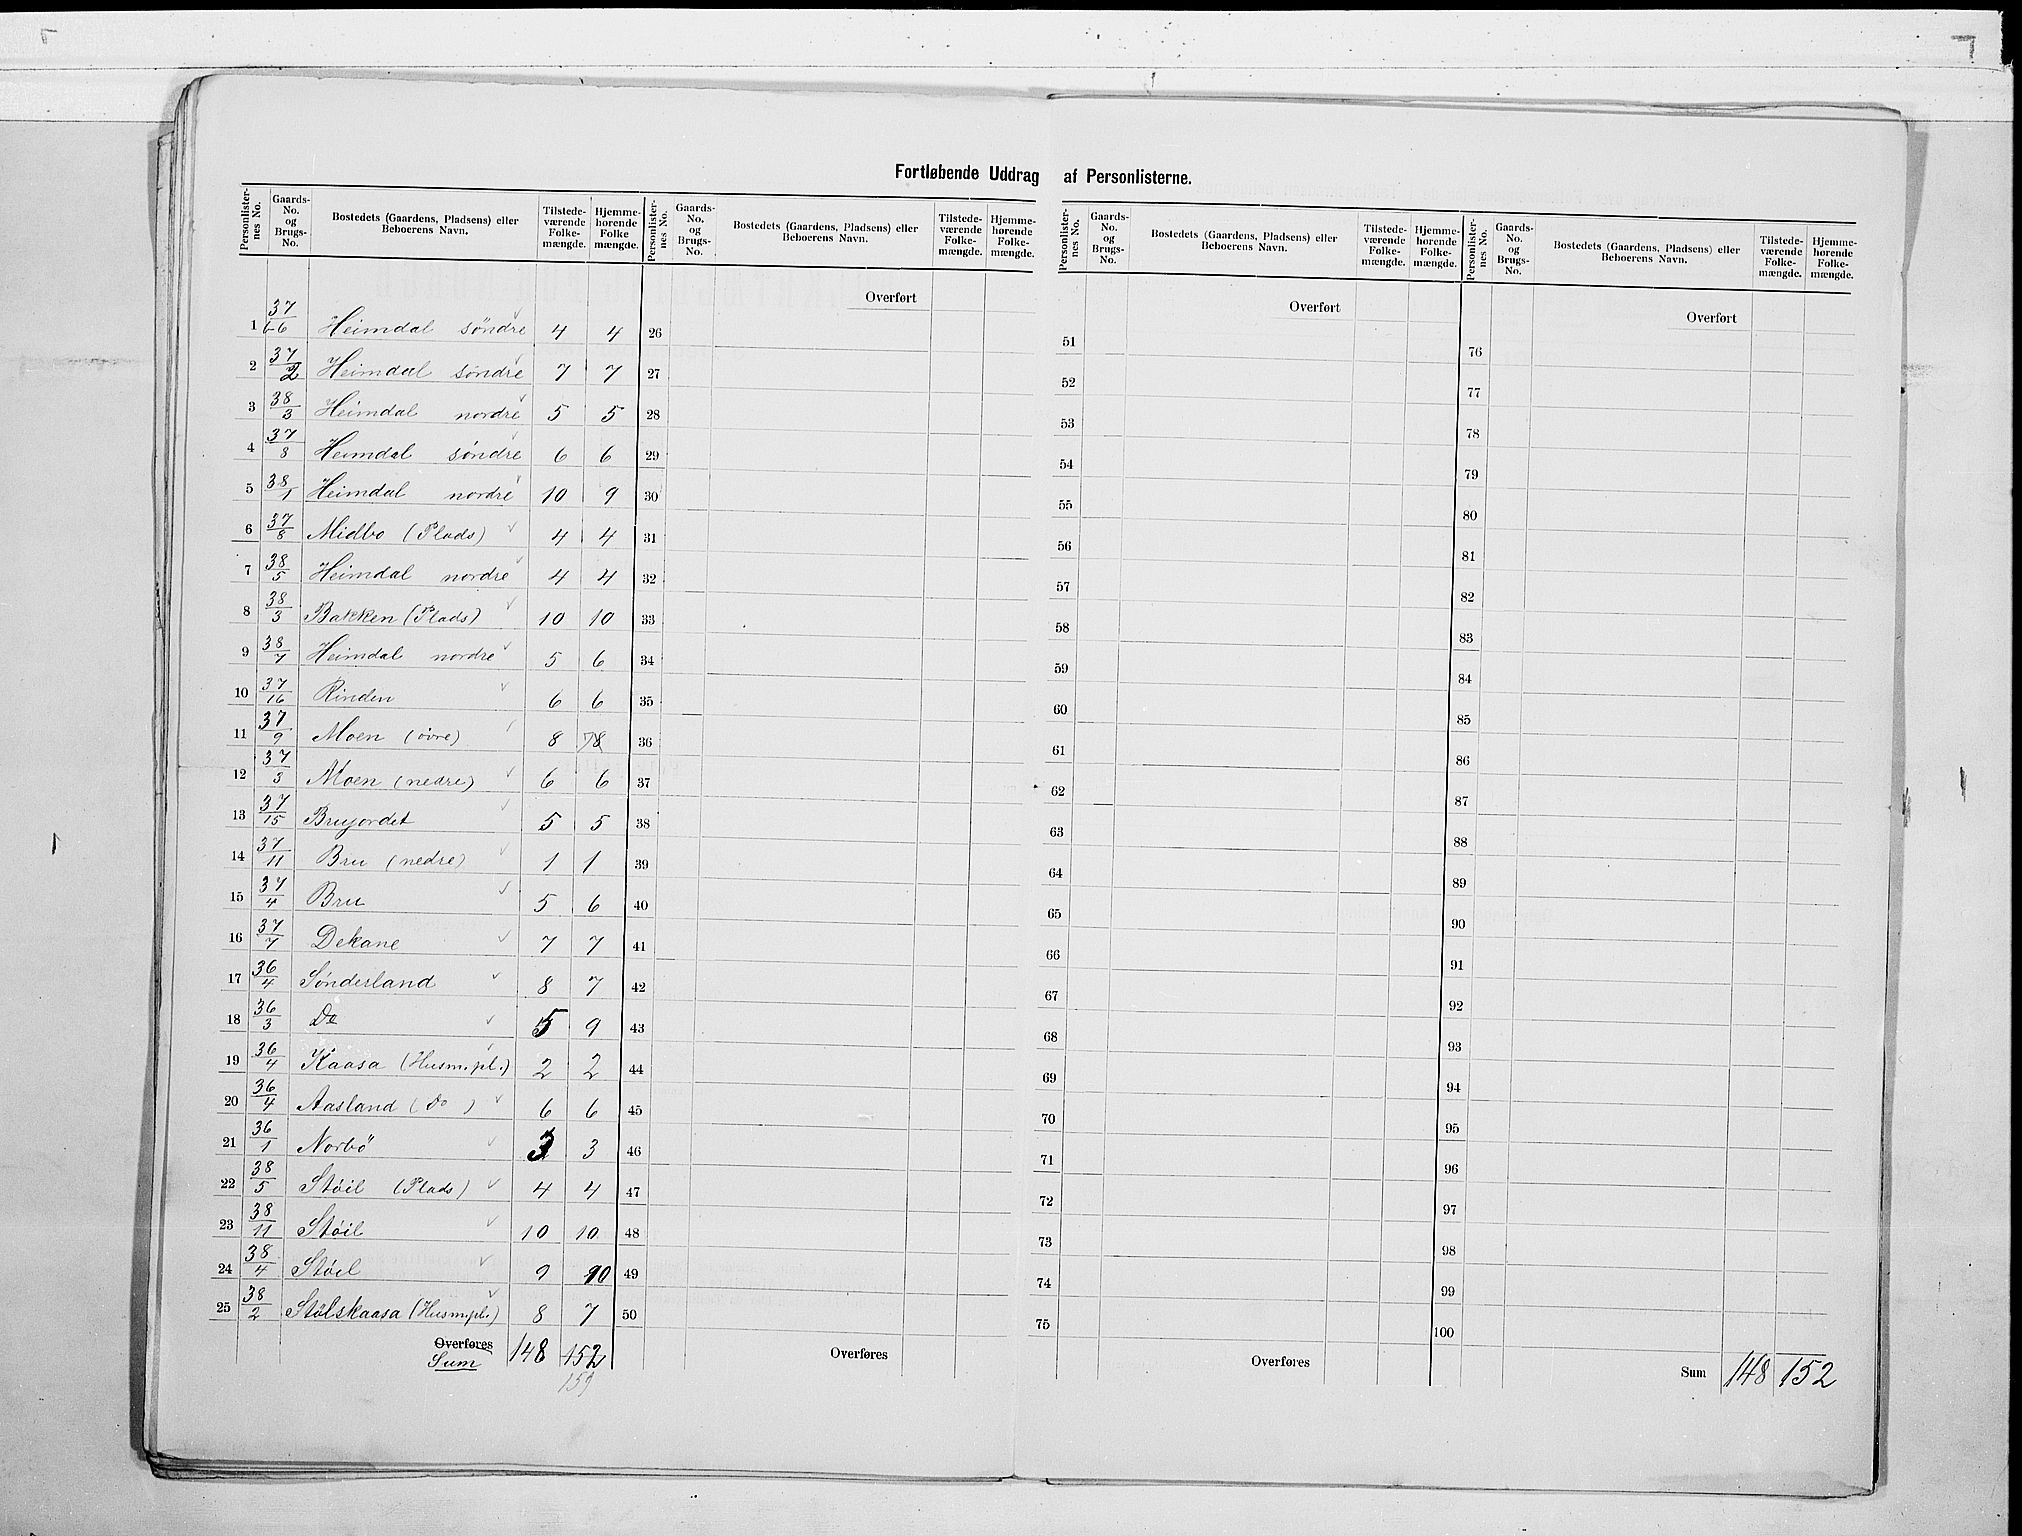 Fortløbende Uddrag af Personlisterne.
Personlister-nes No. Gaards-No. og Brugs-No. Bostedets (Gaardens, Pladsens) eller Beboerens Navn. Tilstede-værende Folke-mængde. Hjemme-hørende Folke mængde. Personlister-nes No. Gaards-No. og Brugs-No. Bostedets (Gaardens, Pladsens) eller Beboerens Navn. Tilstede-værende Folke-mængde. Hjemme-hørende Folke-mængde. Personlister-nes No. Gaards-No. og Brugs-No. Bostedets (Gaardens, Pladsens) eller Beboerens Navn. Tilstede-værende Folke-mængde. Hjemme-hørende Folke-mængde. Personlister-nes No. Gaards-No. og Brugs-No. Bostedets (Gaardens, Pladsens) eller Beboerens Navn. Tilstede-værende Folke-mængde. Hjemme-hørende Folke-mængde.
Overført Overført Overført
1 37/6 Heimdal søndre 4 4 26 51 76
2 37/2 Heimdal søndre 7 7 27 52 77
3 38/3 Heimdal nordre 5 5 28 53 78
4 37/8 Heimdal søndre 6 6 29 54 79
5 38/1 Heimdal nordre 10 9 30 55 80
6 37/8 Midbo (Plads) 4 4 31 56 81
7 38/5 Heimdal nordre 4 4 32 57 82
8 38/3 Bakken (Plads) 10 10 33 58 83
9 38/7 Heimdal nordre 5 6 34 59 84
10 37/16 Rinden 6 6 35 60 85
11 37/9 Moen (øvre) 8 78 36 61 86
12 37/3 Moen (nedre) 6 6 37 62 87
13 37/15 Brujordet 5 5 38 63 88
14 37/11 Bru (nedre) 1 1 39 64 89
15 37/4 Bru 5 6 40 65 90
16 37/7 Dekane 7 7 41 66 91
17 36/4 Sønderland 8 7 42 67 92
18 36/3 Do 5 9 43 68 93
19 36/4 Kaasa (Husm.pl.) 2 2 44 69 94
20 36/4 Aasland (Do) 6 6 45 70 95
21 36/1 Norbö 3 3 46 71 96
22 38/5 Støil (Plads) 4 4 47 72 97
23 38/11 Støil 10 10 48 73 98
24 38/4 Støil 9 10 49 74 99
25 38/2 Stølskaasa (Husm.pl.) 8 7 50 75 100
Overføres 148 152 Overføres Overføres Sum 148 152
Sum
159